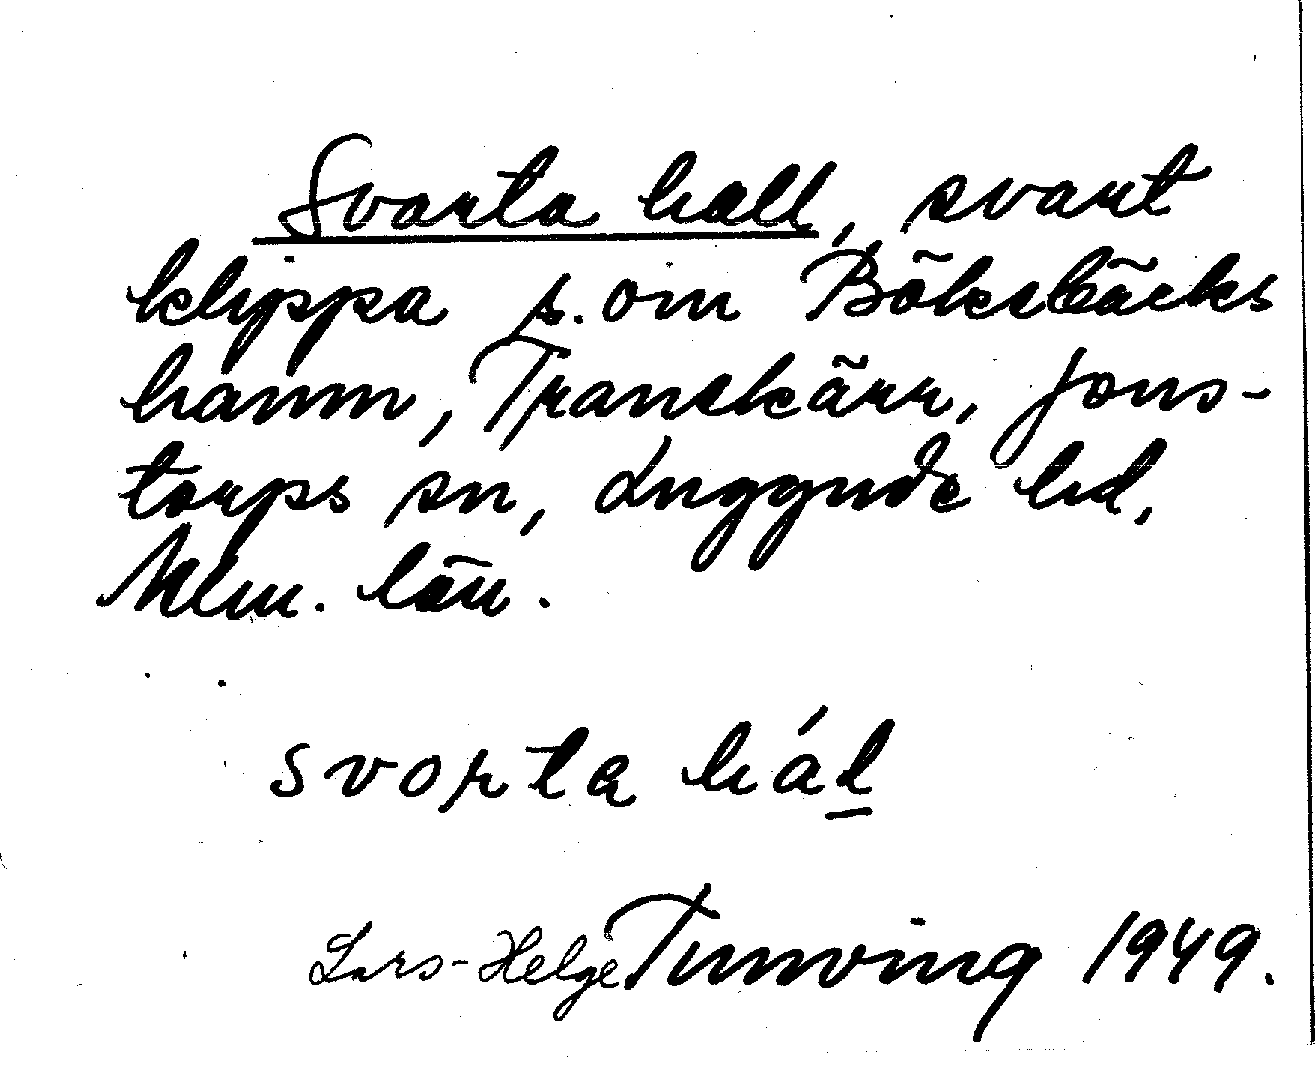 Svarta hall, svart
klippa s. om Böksbäcks
hamn, Tranekärr, Jons-
torps sn, Luggude hd,
Mlm. län.
svorta hál
Lars-Helge Tunving 1949.